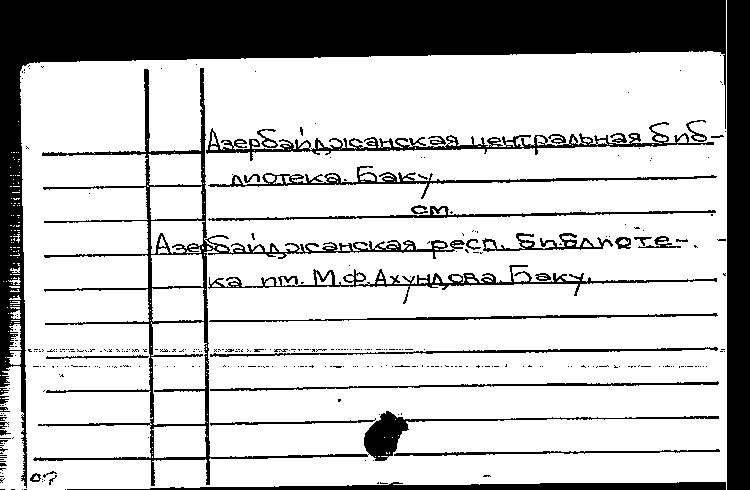 Азербайджанская центральная биб-
лиотека. Баку.
см.
Азербайджанская респ. библиоте-
ка им. М.Ф.Ахундова. Баку.